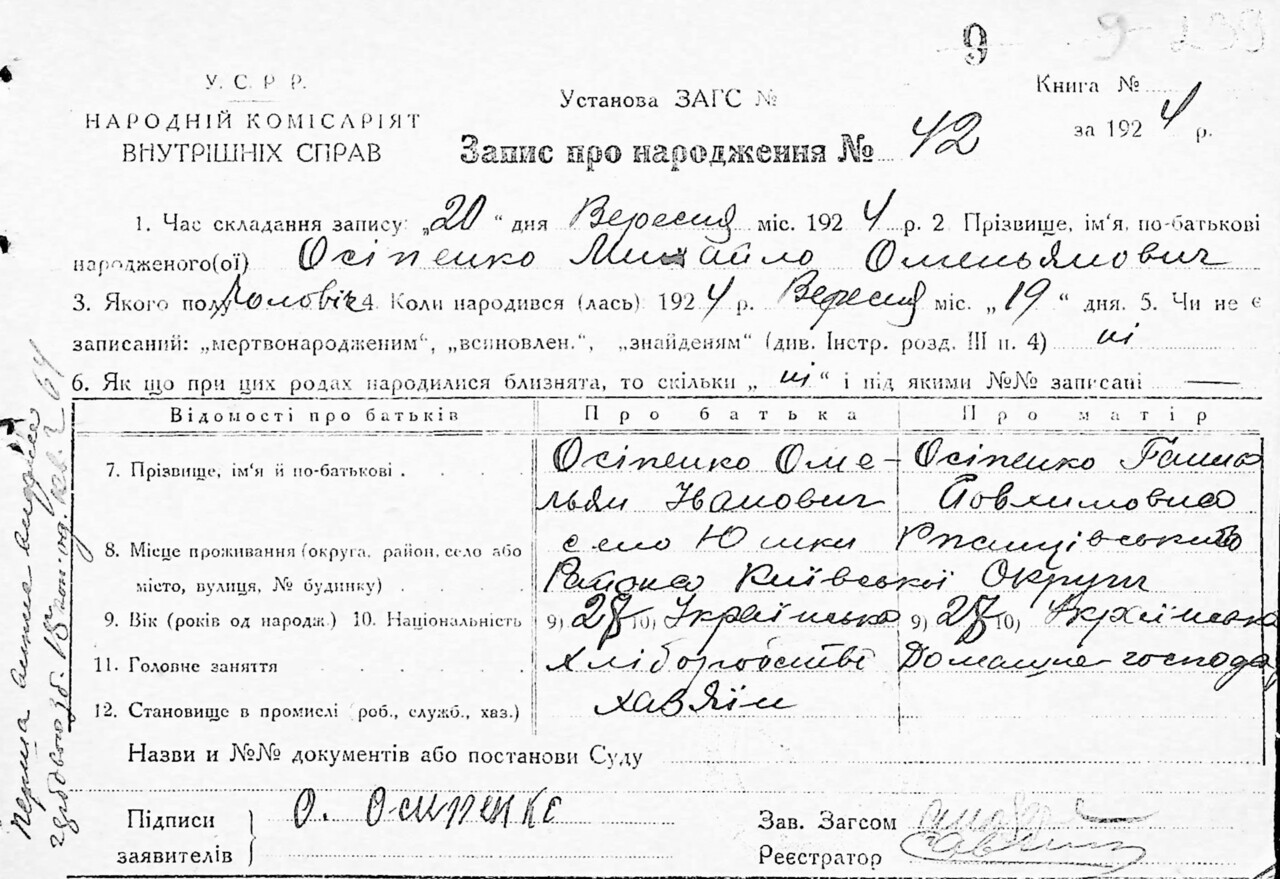 9 9 239
У. С. Р. Р.
НАРОДНІЙ КОМІСАРІЯТ
ВНУТРІШНІХ СПРАВ
Установа ЗАГС №
Запис про народження № 42
Книга №
за 1924 р.
1. Час складання запису: „20“ дня Вересня міс. 1924 р. 2. Прізвище, ім'я, по-батькові
народженого(ої) Осіпенко Михайло Оменьянович
3. Якого полу Чоловіч 4. Коли народився (лась) 1924 р. Вересня міс. „19“ дня. 5. Чи не є
записаний: „мертвонародженим“, „всиновлен.“, „знайденям“ (див. Інстр. розд. III п. 4) ні
6. Як що при цих родах народилися близнята, то скільки „ні“ і під якими №№ записані —
Відомості про батьків Про батька Про матір
7. Прізвище, ім'я й по-батькові Осіпенко Оме- Осіпенко Ганна
льян Іванович Йовхимовна
8. Місце проживання (округа, район, село або село Юшки Ржищівського
місто, вулиця, № будинку) Района Київської Округи
9. Вік (років од народж.) 10. Національність 9) 28 10) Українська 9) 28 10) Українська
11. Головне заняття Хліборобстві Домашне господа
12. Становище в промислі (роб., служб., хаз.) хавяїн
Назви и №№ документів або постанови Суду
Підписи
заявителів
О. Осипенко
Зав. Загсом
Реєстратор